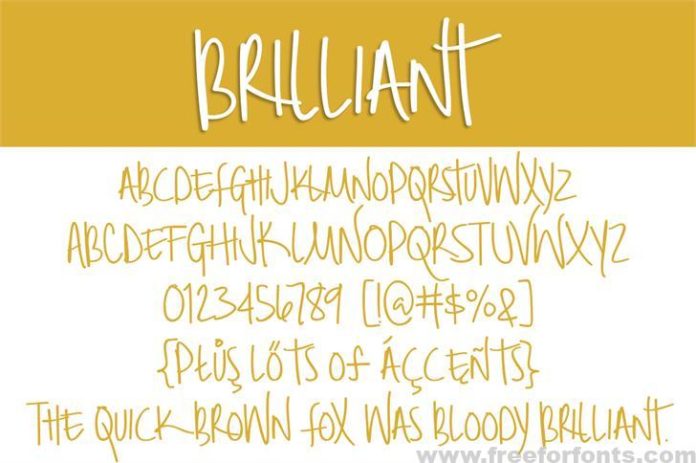 BRILLIANT
ABCDEfGHIJKLMNOPQRSTUVWXYZ
ABCDEFGHIJKLMNOPQRSTUVWXYZ
0123456789 [!@#$%&]
{PŁŮŞ LŐTS Of ÁÇCĘÑTS}
THE QUICK BROWN fOX WAS BLOODY BRILLIANT.
www.freeforfonts.com